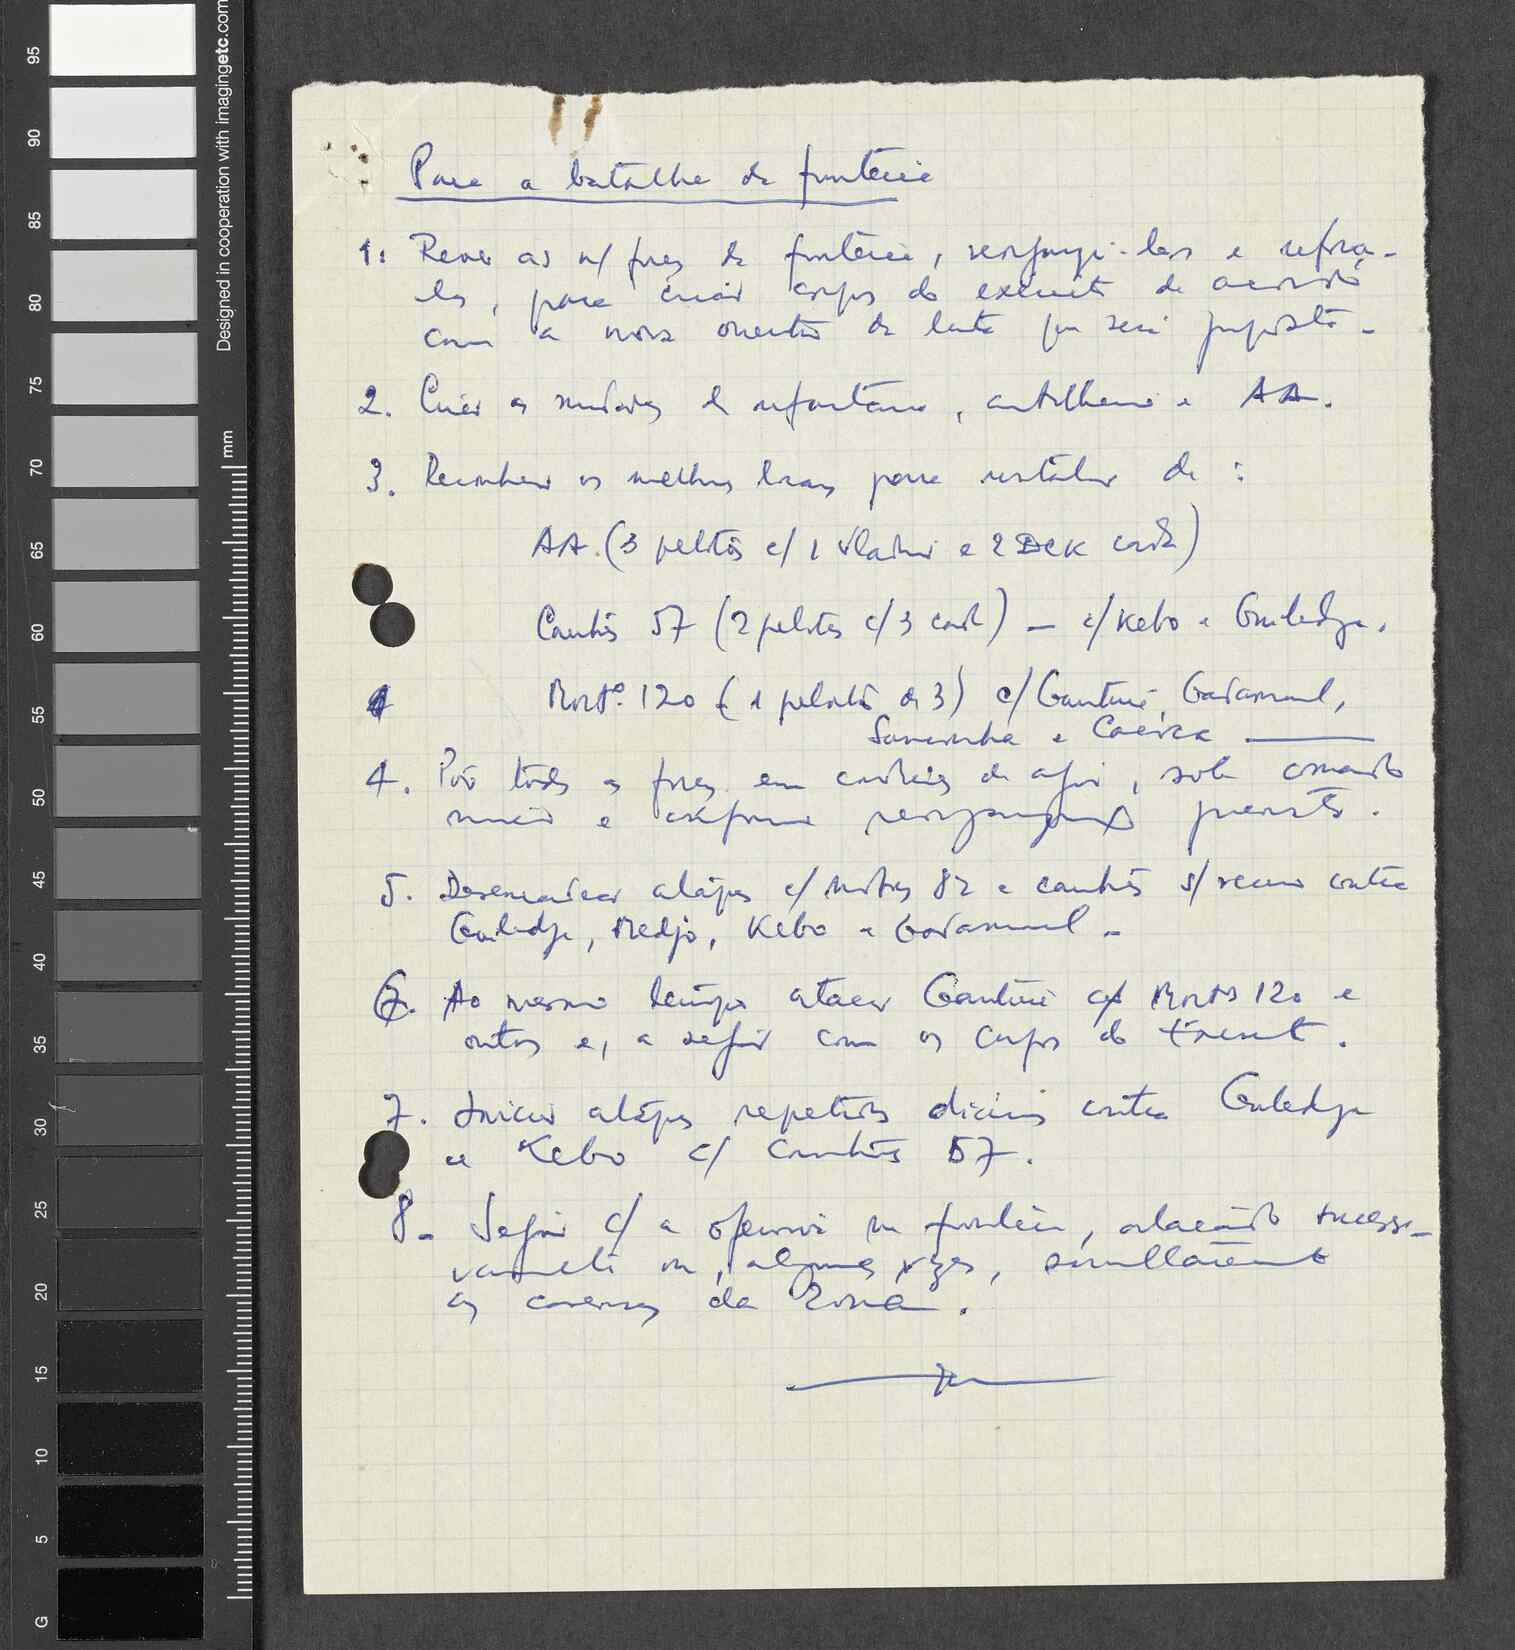 Para a batalha da fronteira
1: Rever as n/ forças da fronteira, reorganizá-las e reforçá-
las, para criar corpos do exército de acordo
com a nova orientação da luta que será proposta -
2. Criar as unidades de infantaria, artilharia e AA.
3. Reconhecer os melhores locais para instalação de :
AA. (3 pelotões c/ 1 Vladimir e 2 DCK cada)
Canhões 57 (2 pelotões c/ 3 cada) - c/ Kebo e Guiledge.
Mort.º 120 (1 pelotão de 3) c/ Ganturé, Gadamael,
Sanconha e Cacoca
4. Pôr todas as forças em condições de agir, sob comando
único e conforme reorganização prevista.
5. Desencadear ataques c/ morteiros 82 e canhões s/ recuo contra
Guiledge, Medjo, Kebo e Gadamael -
6. Ao mesmo tempo atacar Ganturé c/ Morts 120 e
outros e, a seguir com os Corpos do Exército.
7. Iniciar ataques repetidos diários contra Guiledge
e Kebo c/ canhões 57.
8. Seguir c/ a ofensiva na fronteira, atacando sucessi-
vamente ou, algumas vezes, simultaneamente
os da zona.
Designed in cooperation with imagingetc.com
mm
95
90
85
80
75
70
65
60
55
50
45
40
35
30
25
20
15
10
5
G